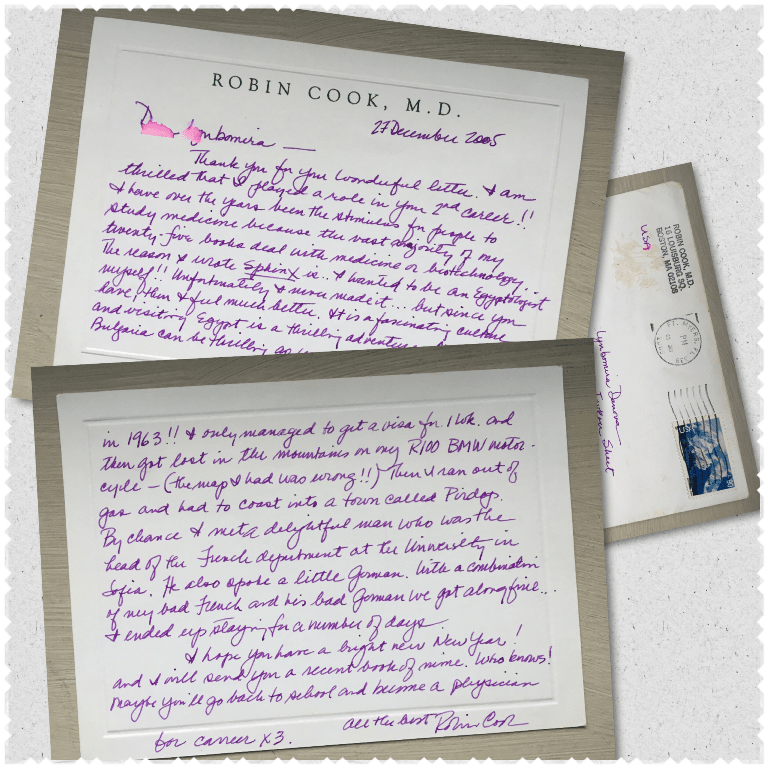 ROBIN COOK, M.D.
27 December 2005
Lyubomira —
Thank you for your wonderful letter. I am
thrilled that I played a role in your 2nd career!!
I have over the years been the stimulus for people to
study medicine because the vast majority of my
twenty-five books deal with medicine or biotechnology...
The reason I wrote Sphinx is.. I wanted to be an Egyptologist
myself!! Unfortunately I never made it... but since you
have, then I feel much better. It is a fascinating culture
and visiting Egypt is a thrilling adventure.
Bulgaria can be thrilling
in 1963!! I only managed to get a visa for 1 wk. and
then got lost in the mountains on my R100 BMW motor-
cycle - (the map I had was wrong!!) Then I ran out of
gas and had to coast into a town called Pirdop.
By chance I met a delightful man who was the
head of the French department at the University in
Sofia. He also spoke a little German. With a combination
of my bad French and his bad German we got along fine...
I ended up staying for a number of days.
I hope you have a bright new New Year!
and I will send you a recent book of mine. Who knows!
maybe you'll go back to school and become a physician
for career x3.
all the best Robin Cook
ROBIN COOK, M.D.
16 LOUISBURG SQ.
BOSTON, MA 02108
USA
Lyubomira
Street
PM
USA